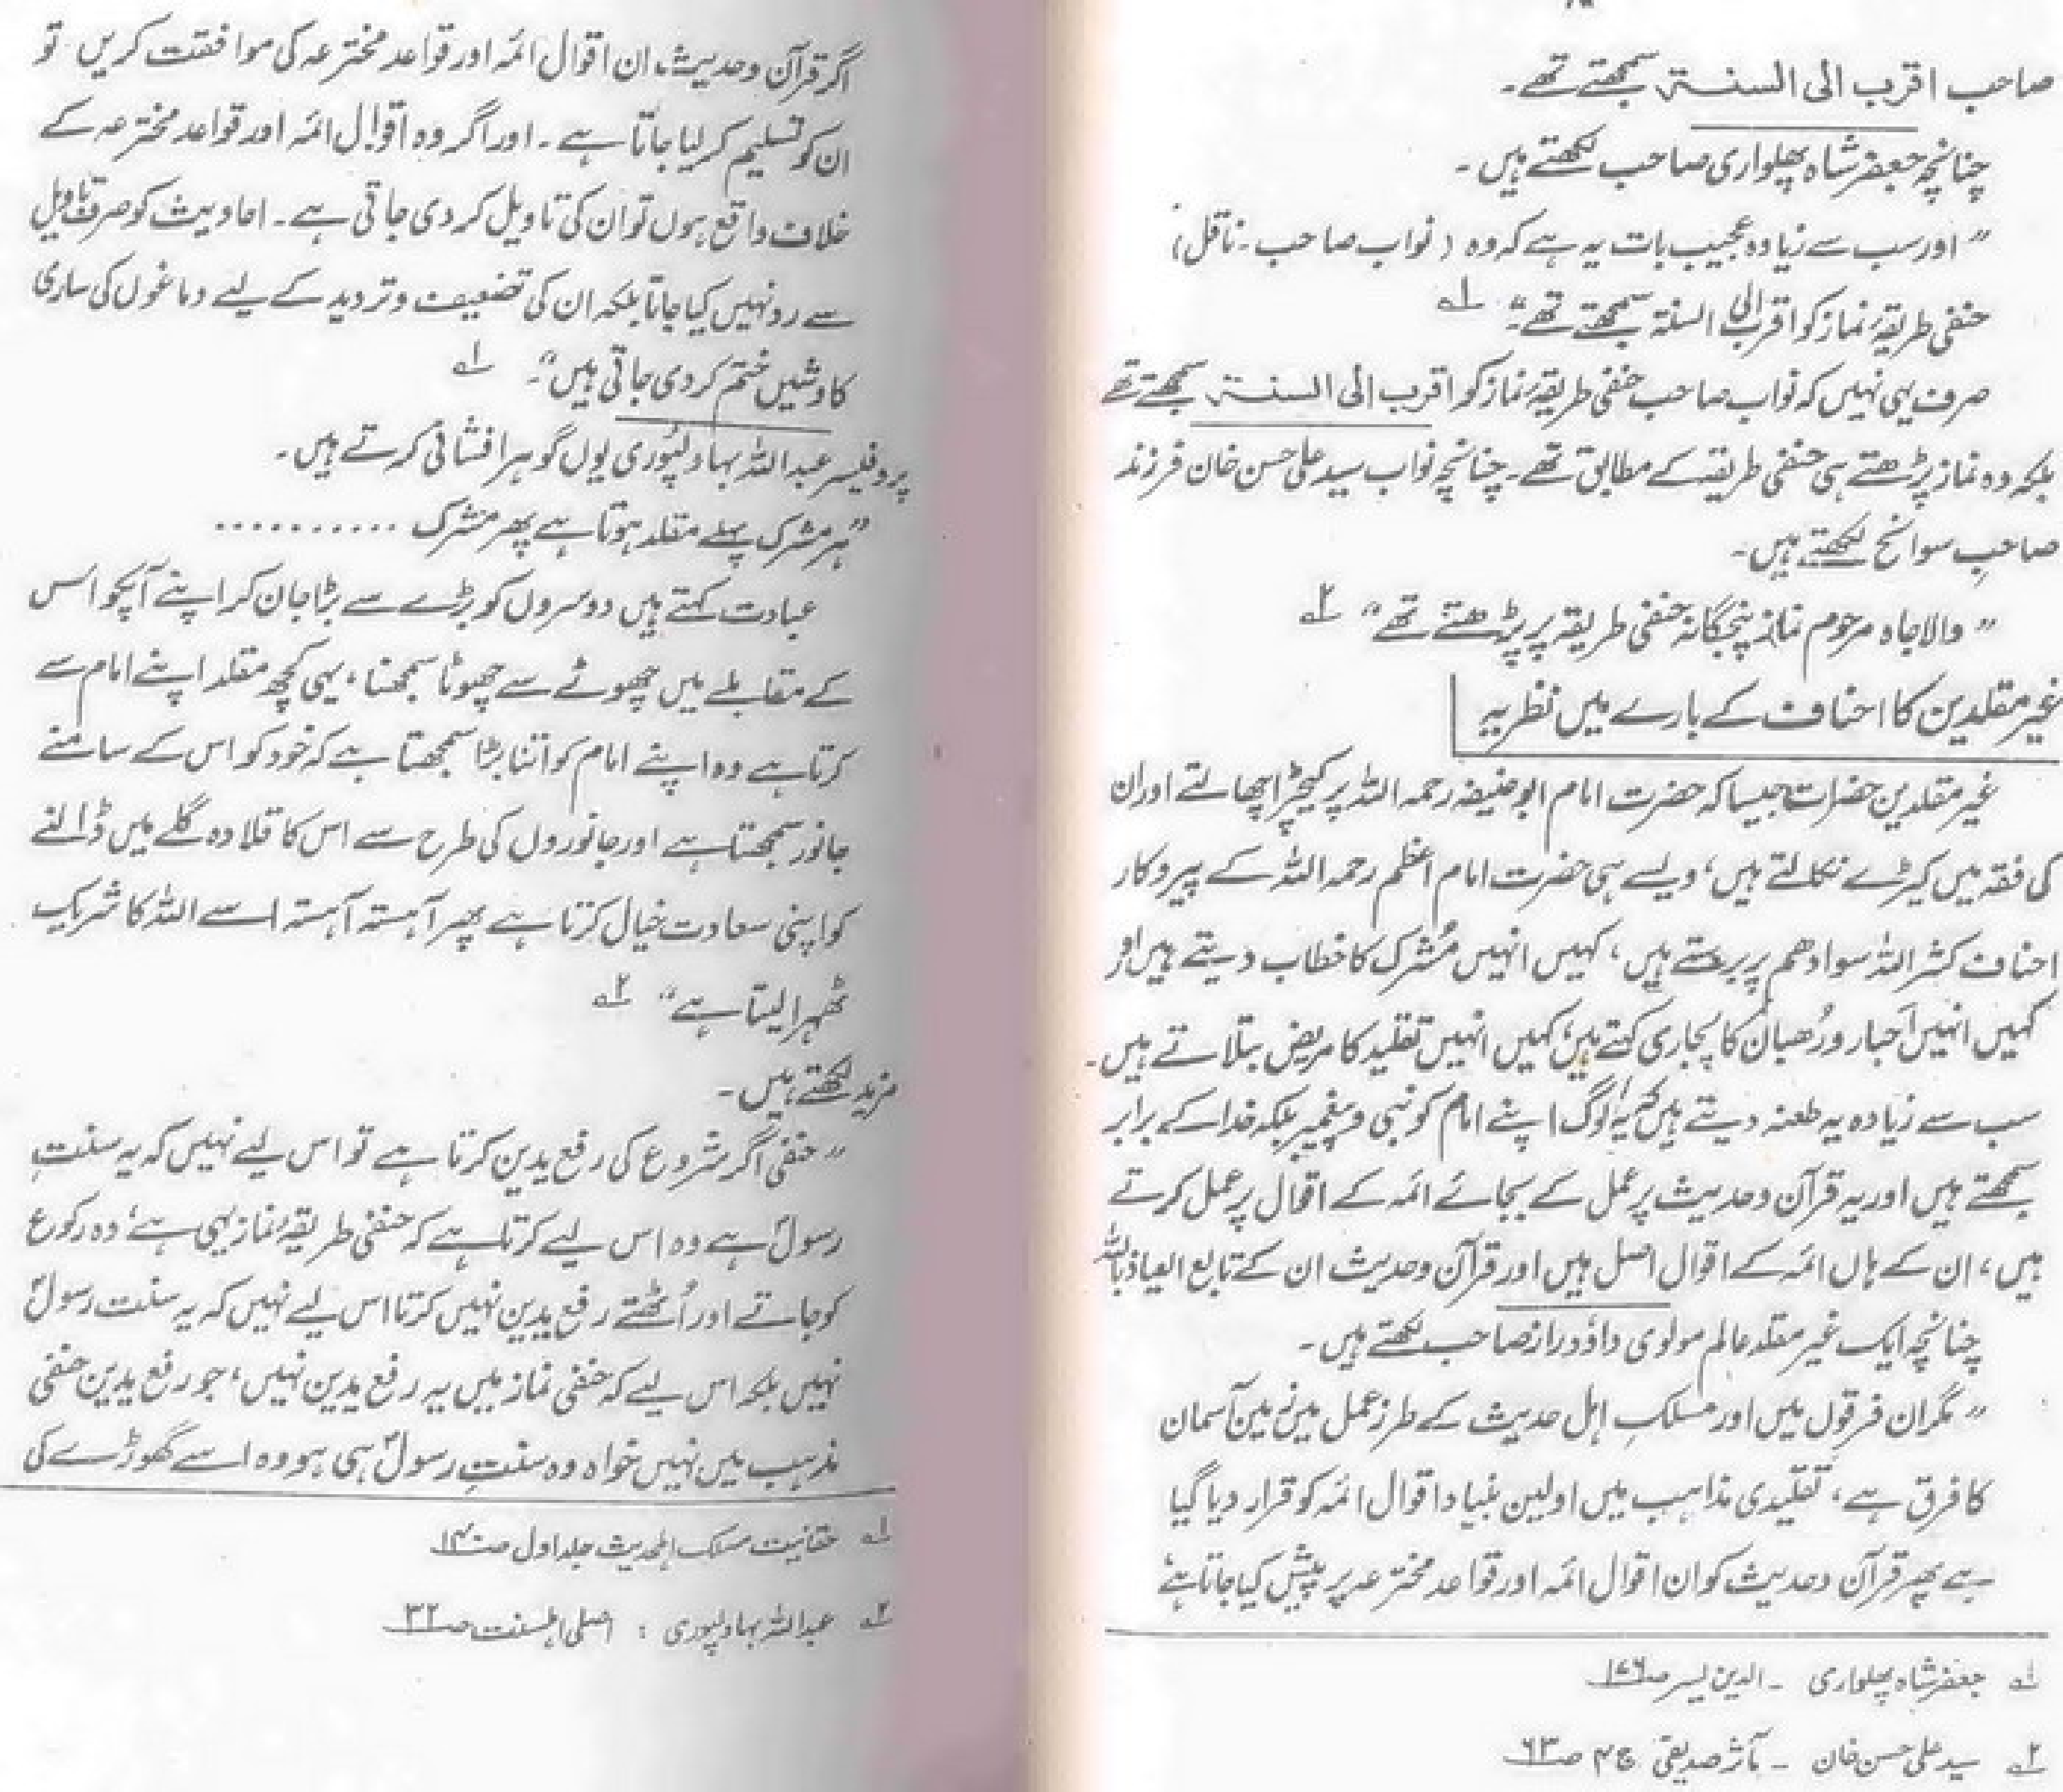 صاحب اقرب الی السنۃ سمجھتے تھے۔
چنانچہ جعفر شاہ پھلواری صاحب لکھتے ہیں۔
”اور سب سے زیادہ عجیب بات یہ ہے کہ وہ (نواب صاحب۔ ناقل)
حنفی طریقۂ نماز کو اقرب الی السنۃ سمجھتے تھے“ ۱؎
صرف یہی نہیں کہ نواب صاحب حنفی طریقۂ نماز کو اقرب الی السنۃ سمجھتے تھے
بلکہ وہ نماز پڑھتے ہی حنفی طریقہ کے مطابق تھے۔ چنانچہ نواب سید علی حسن خان فرزند
صاحبِ سوانح لکھتے ہیں۔
”والا جاہ مرحوم نماز پنجگانہ حنفی طریقہ پر پڑھتے تھے“ ۲؎
غیر مقلدین کا احناف کے بارے میں نظریہ
غیر مقلدین حضرات جیسا کہ حضرت امام ابو حنیفہ رحمہ اللہ پر کیچڑ اچھالتے اور ان
کی فقہ میں کیڑے نکالتے ہیں، ویسے ہی حضرت امام اعظم رحمہ اللہ کے پیروکار
احناف کثر اللہ سوادھم پر برستے ہیں، کہیں انہیں مُشرک کا خطاب دیتے ہیں اور
کہیں انہیں اَحبار و رُھبان کا پجاری کہتے ہیں، کہیں انہیں تقلید کا مریض بتلاتے ہیں۔
سب سے زیادہ یہ طعنہ دیتے ہیں کہ یہ لوگ اپنے امام کو نبی و پیغمبر بلکہ خدا کے برابر
سمجھتے ہیں اور یہ قرآن و حدیث پر عمل کے بجائے ائمہ کے اقوال پر عمل کرتے
ہیں، ان کے ہاں ائمہ کے اقوال اصل ہیں اور قرآن و حدیث ان کے تابع العیاذ باللہ
چنانچہ ایک غیر مقلد عالم مولوی داؤد راز صاحب لکھتے ہیں۔
”مگر ان فرقوں میں اور مسلکِ اہل حدیث کے طرز عمل میں زمین آسمان
کا فرق ہے، تقلیدی مذاہب میں اولین بنیاد اقوال ائمہ کو قرار دیا گیا
ہے پھر قرآن و حدیث کو ان اقوال ائمہ اور قواعد مخترعہ پر پیش کیا جاتا ہے
۱؎ جعفر شاہ پھلواری ۔ الدین یسر ص۱۷۶
۲؎ سید علی حسن خان ۔ مآثر صدیقی ج ۴ ص۶۳
اگر قرآن و حدیث ان اقوال ائمہ اور قواعد مخترعہ کی موافقت کریں تو
ان کو تسلیم کر لیا جاتا ہے۔ اور اگر وہ اقوال ائمہ اور قواعد مخترعہ کے
خلاف واقع ہوں تو ان کی تاویل کر دی جاتی ہے۔ احادیث کو صرف تاویل
سے رد نہیں کیا جاتا بلکہ ان کی تضعیف و تردید کے لیے دماغوں کی ساری
کاوشیں ختم کر دی جاتی ہیں“۔ ۱؎
پروفیسر عبداللہ بہاولپُوری یوں گوہر افشانی کرتے ہیں۔
”ہر مشرک پہلے مقلد ہوتا ہے پھر مشرک ..........
عبادت کہتے ہیں دوسروں کو بڑے سے بڑا جان کر اپنے آپکو اس
کے مقابلے میں چھوٹے سے چھوٹا سمجھنا، یہی کچھ مقلد اپنے امام سے
کرتا ہے وہ اپنے امام کو اتنا بڑا سمجھتا ہے کہ خود کو اس کے سامنے
جانور سمجھتا ہے اور جانوروں کی طرح سے اس کا قلادہ گلے میں ڈالنے
کو اپنی سعادت خیال کرتا ہے پھر آہستہ آہستہ اسے اللہ کا شریک
ٹھہرا لیتا ہے“ ۲؎
مزید لکھتے ہیں۔
”حنفی اگر شروع کی رفع یدین کرتا ہے تو اس لیے نہیں کہ یہ سنتِ
رسولؐ ہے وہ اس لیے کرتا ہے کہ حنفی طریقۂ نماز یہی ہے، وہ رکوع
کو جاتے اور اُٹھتے رفع یدین نہیں کرتا اس لیے نہیں کہ یہ سنت رسولؐ
نہیں بلکہ اس لیے کہ حنفی نماز میں یہ رفع یدین نہیں، جو رفع یدین حنفی
مذہب میں نہیں خواہ وہ سنتِ رسولؐ ہی ہو وہ اسے گھوڑے کی
۱؎ حقانیت مسلک اہلحدیث جلد اول
۲؎ عبداللہ بہاولپوری : اصلی اہلسنت ص۳۲